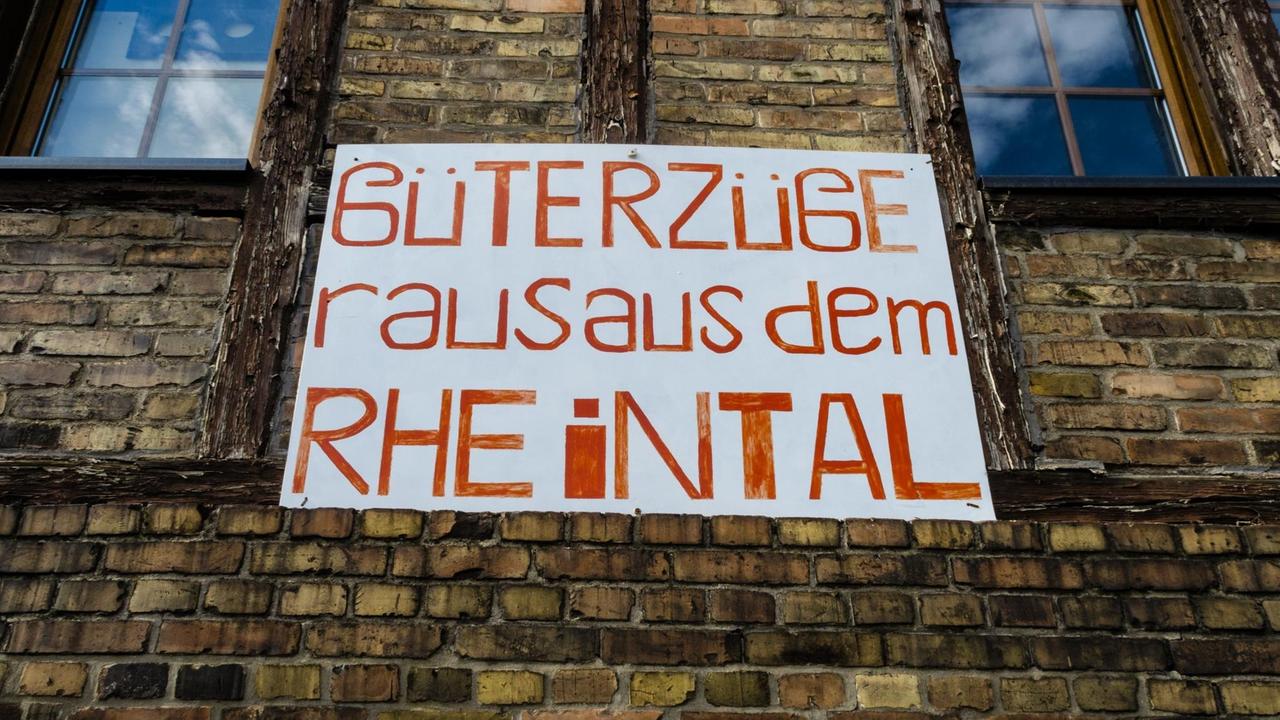 GÜTERZÜGE
raus aus dem
RHEiNTAL